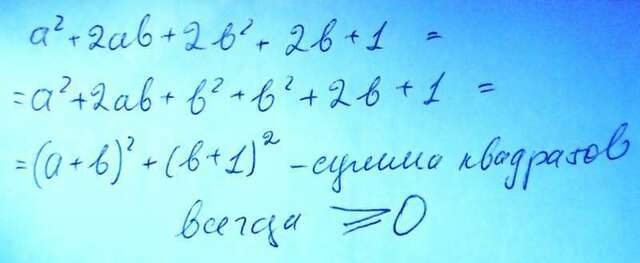 a² + 2ab + 2b² + 2b + 1 =
= a² + 2ab + b² + b² + 2b + 1 =
= (a + b)² + (b + 1)² – сумма квадратов
всегда ⩾ 0